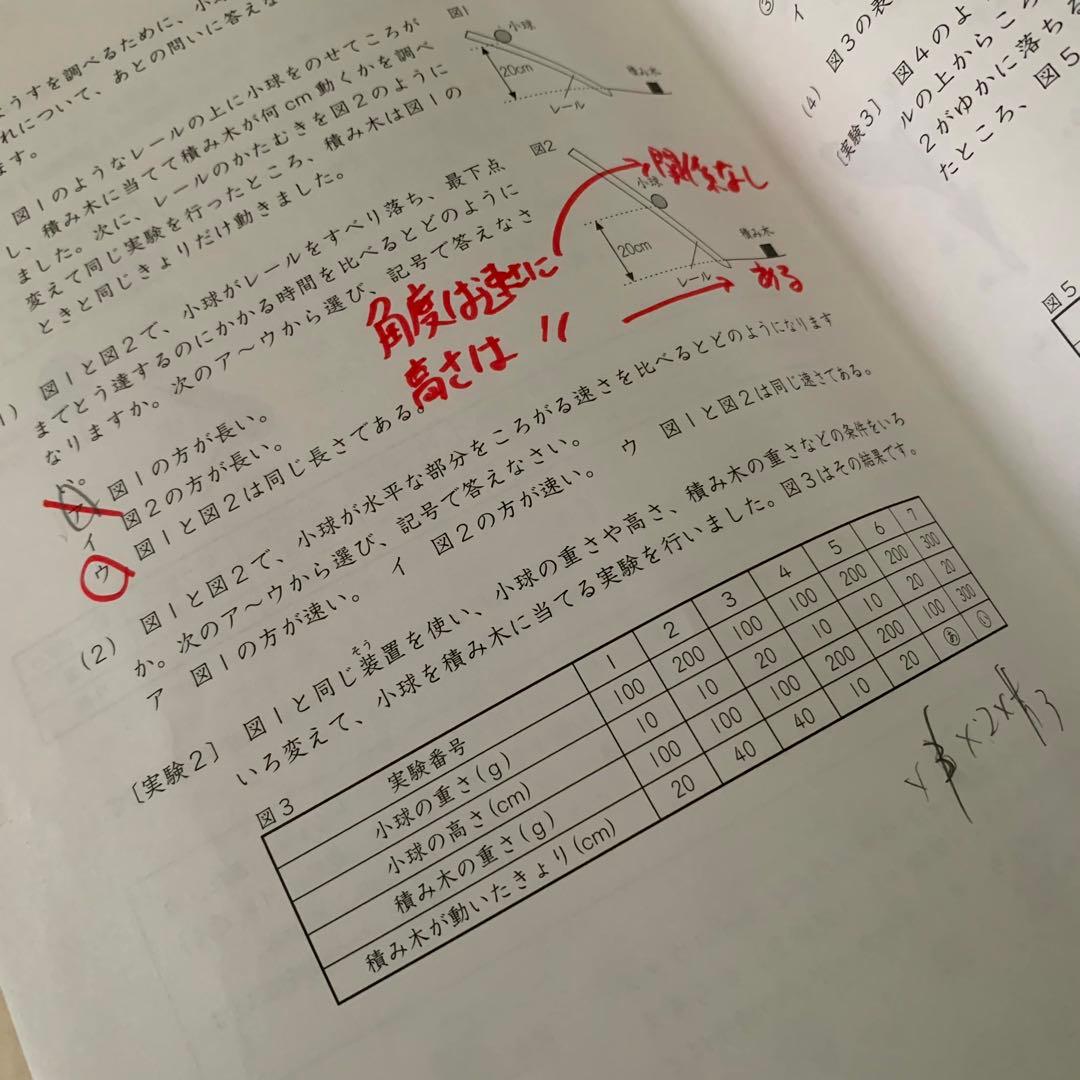 ようすを調べるために、小
れについて、あとの問いに答えな
ます。
図1のようなレールの上に小球をのせてころが
し、積み木に当てて積み木が何cm動くかを調べ
ました。次に、レールのかたむきを図2のように
変えて同じ実験を行ったところ、積み木は図1の
ときと同じきょりだけ動きました。
図1
小球
20cm
レール
積み木
図2
小球
20cm
レール
積み木
関係なし
角度は速さに
高さは 〃
ある
1) 図1と図2で、小球がレールをすべり落ち、最下点
までとう達するのにかかる時間を比べるとどのように
なりますか。次のア～ウから選び、記号で答えなさ
い。
ア 図1の方が長い。
イ 図2の方が長い。
ウ 図1と図2は同じ長さである。
(2) 図1と図2で、小球が水平な部分をころがる速さを比べるとどのようになります
か。次のア～ウから選び、記号で答えなさい。
ア 図1の方が速い。 イ 図2の方が速い。 ウ 図1と図2は同じ速さである。
[実験2] 図1と同じ装置を使い、小球の重さや高さ、積み木の重さなどの条件をいろ
そう
いろ変えて、小球を積み木に当てる実験を行いました。図3はその結果です。
図3
実験番号 1 2 3 4 5 6 7
小球の重さ(g) 100 200 100 100 200 200 300
小球の高さ(cm) 10 10 20 10 10 20 20
積み木の重さ(g) 100 100 100 200 200 100 300
積み木が動いたきょり(cm) 20 40 40 10 20 あ い
イ
図3の表
(4)
[実験3] 図4のよ
ルの上からころ
2がゆかに落ちる
たところ、図5
図5